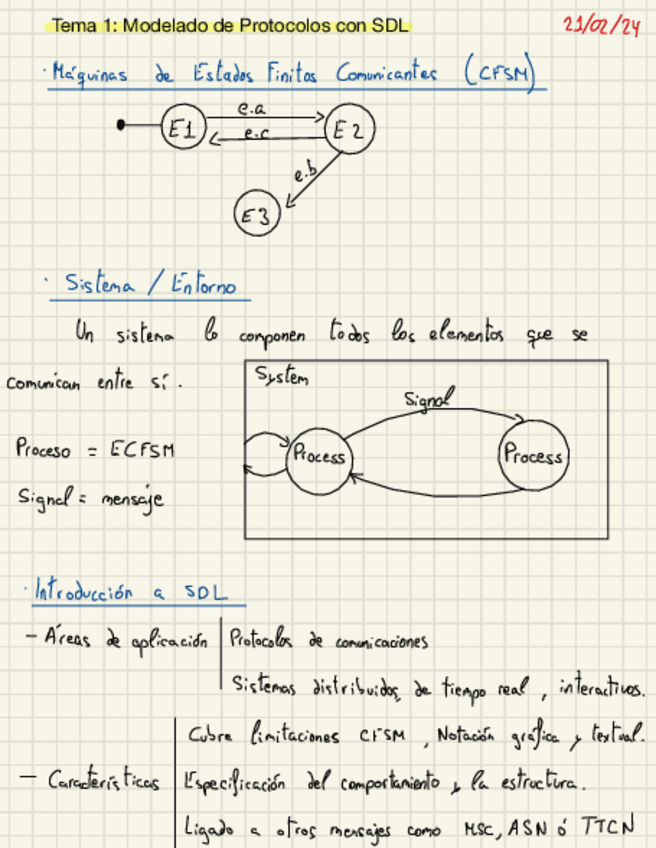 Tema 1: Modelado de Protocolos con SDL
21/02/24
· Máquinas de Estados Finitos Comunicantes (CFSM)
E1 e.a E2
e.c
e.b
E3
· Sistema / Entorno
Un sistema lo componen todos los elementos que se
comunican entre sí.
System
Signal
Proceso = ECFSM
Process Process
Signal = mensaje
· Introducción a SDL
- Áreas de aplicación | Protocolos de comunicaciones
Sistemas distribuidos, de tiempo real, interactivos.
Cubre limitaciones CFSM, Notación gráfica y textual.
- Características | Especificación del comportamiento y la estructura.
Ligado a otros mensajes como MSC, ASN ó TTCN